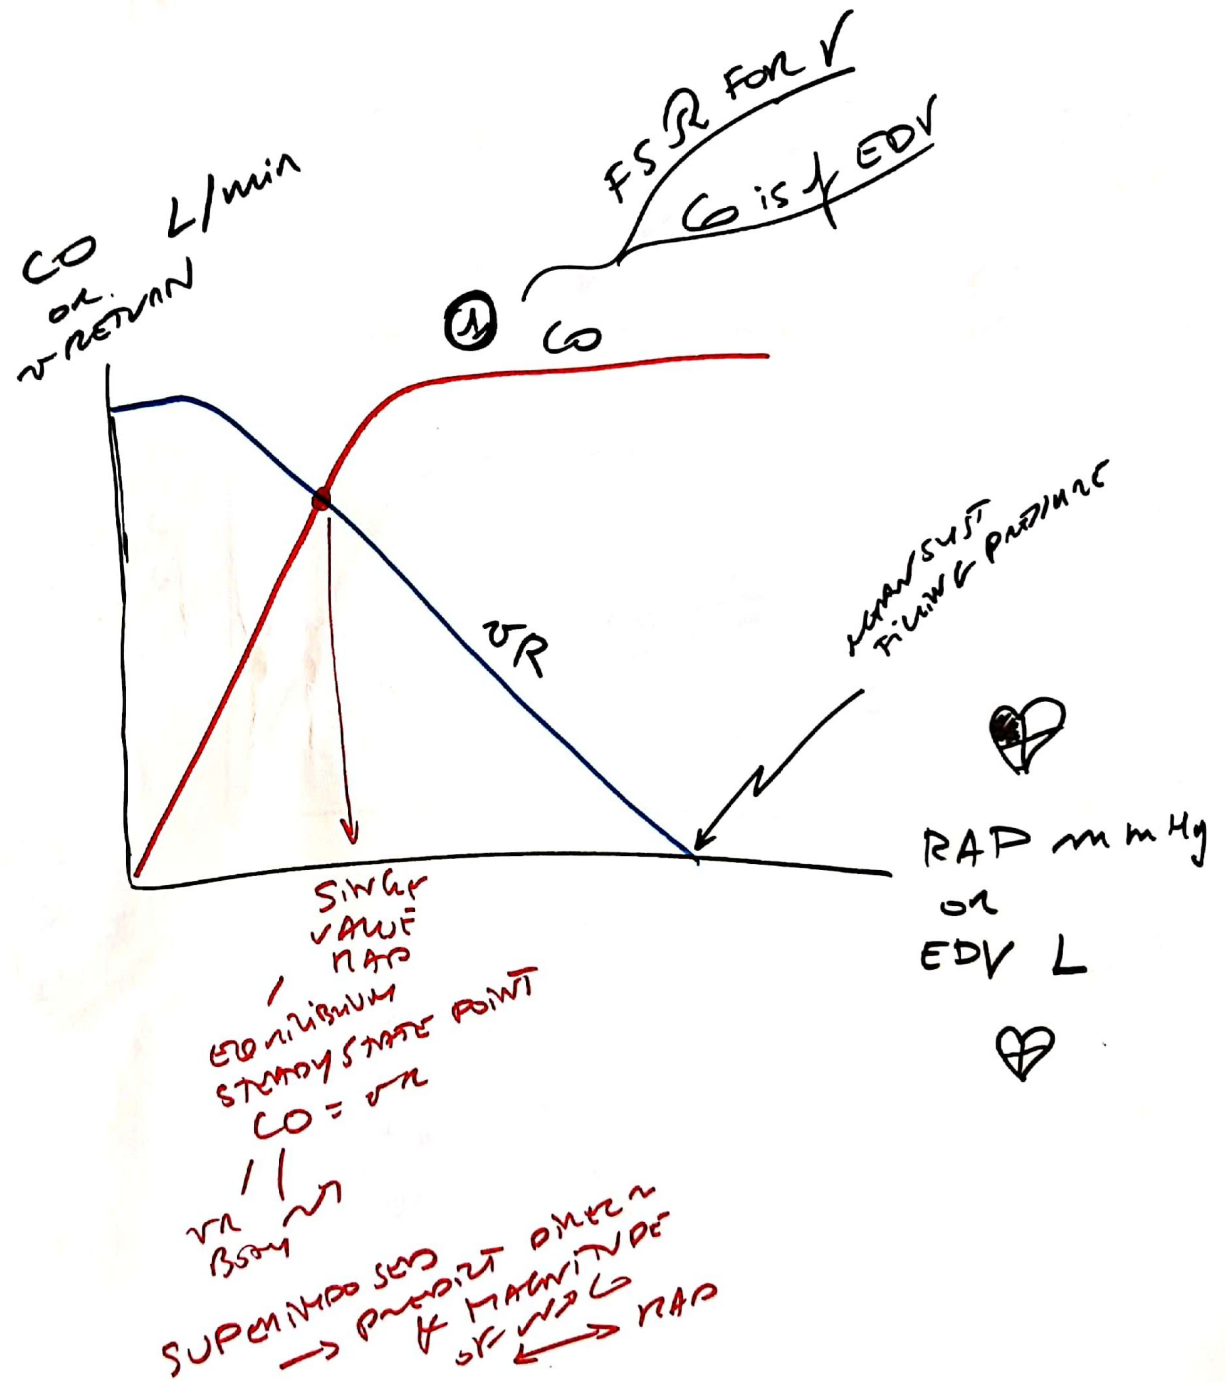 FSR FOR V
CO is f EDV
CO L/min
OR
V RETURN
1 CO
MEAN SYST
FILLING PRESSURE
VR
RAP mmHg
OR
EDV L
SINGLE
VALUE
RAP
EQUILIBRIUM
STEADY STATE POINT
CO = VR
VR
BODY
SUPERIMPOSED
→ PREDICT DIREC~
& MAGNITUDE
OF CO
RAP